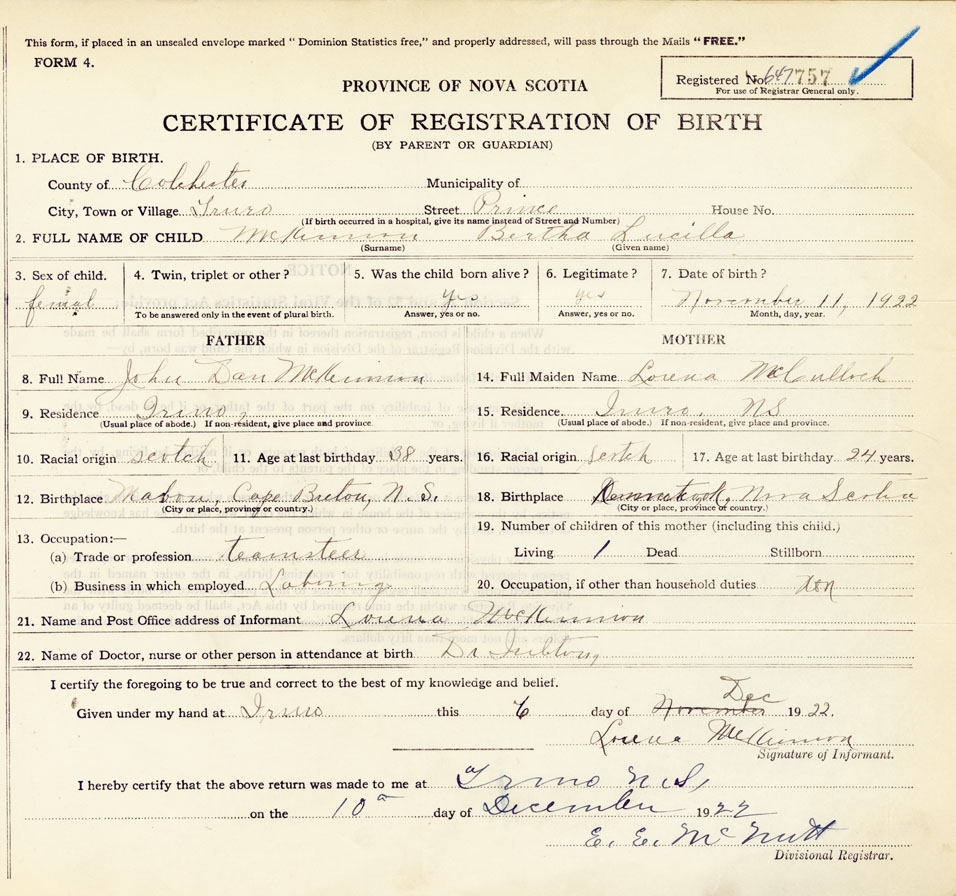 This form, if placed in an unsealed envelope marked “ Dominion Statistics free,” and properly addressed, will pass through the Mails “FREE.”
FORM 4.
Registered No. 647757
For use of Registrar General only.
PROVINCE OF NOVA SCOTIA
CERTIFICATE OF REGISTRATION OF BIRTH
(BY PARENT OR GUARDIAN)
1. PLACE OF BIRTH.
County of Colchester Municipality of
City, Town or Village Truro Street Prince House No.
(If birth occurred in a hospital, give its name instead of Street and Number)
2. FULL NAME OF CHILD McKinnon Bertha Lucilla
(Surname) (Given name)
3. Sex of child. 4. Twin, triplet or other? 5. Was the child born alive? 6. Legitimate? 7. Date of birth?
femal yes yes November 11, 1922
To be answered only in the event of plural birth. Answer, yes or no. Answer, yes or no. Month, day, year.
FATHER MOTHER
8. Full Name John Dan McKinnon 14. Full Maiden Name Lorena McCulloch
9. Residence Truro, 15. Residence. Truro, NS
(Usual place of abode.) If non-resident, give place and province. (Usual place of abode.) If non-resident, give place and province.
10. Racial origin scotch 11. Age at last birthday 38 years. 16. Racial origin scotch 17. Age at last birthday 24 years.
12. Birthplace Mabou, Cape Breton, N.S. 18. Birthplace Nova Scotia
(City or place, province or country.) (City or place, province or country.)
13. Occupation:— 19. Number of children of this mother (including this child.)
(a) Trade or profession teamsteer Living 1 Dead Stillborn
(b) Business in which employed Laboring 20. Occupation, if other than household duties
21. Name and Post Office address of Informant Lorena McKinnon
22. Name of Doctor, nurse or other person in attendance at birth Dr
I certify the foregoing to be true and correct to the best of my knowledge and belief.
Given under my hand at Truro this 6 day of November Dec 1922.
Lorena McKinnon
Signature of Informant.
I hereby certify that the above return was made to me at Truro N.S,
on the 10 day of December 1922
E. E. McNutt
Divisional Registrar.